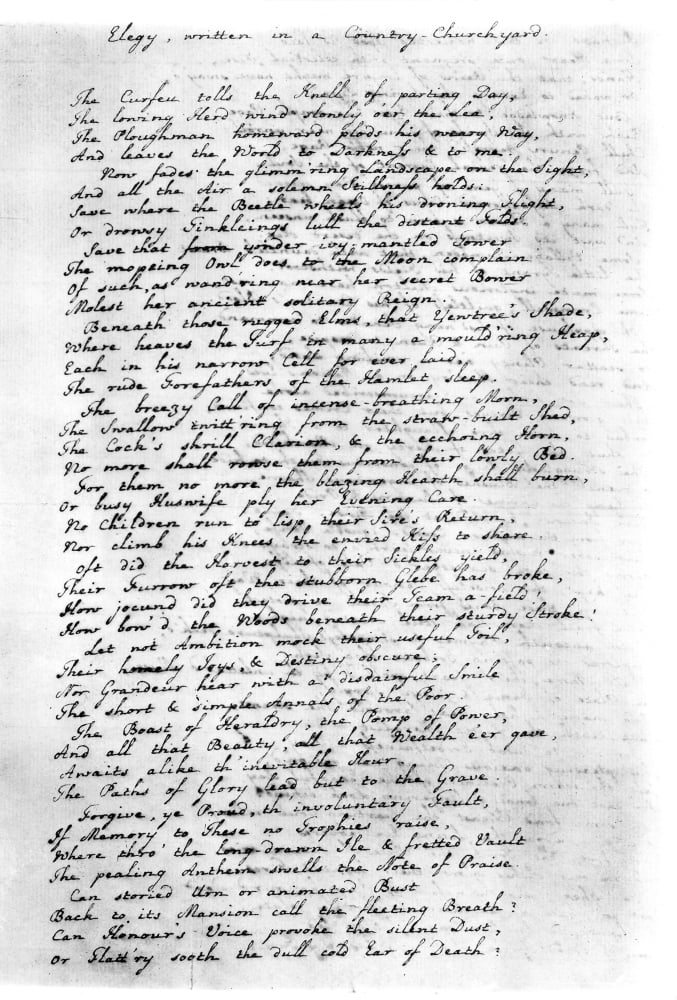 Elegy, written in a Country-Churchyard.
The Curfeu tolls the Knell of parting Day,
The lowing Herd wind slowly o'er the Lea,
The Ploughman homeward plods his weary Way,
And leaves the World to Darkness & to me.
Now fades the glimm'ring Landscape on the Sight,
And all the Air a solemn Stillness holds;
Save where the Beetle wheels his droning Flight,
Or drowsy Tinkleings lull the distant Folds.
Save that from yonder ivy-mantled Tower
The mopeing Owl does to the Moon complain
Of such, as wand'ring near her secret Bower
Molest her ancient solitary Reign.
Beneath those rugged Elms, that Yewtree's Shade,
Where heaves the Turf in many a mould'ring Heap,
Each in his narrow Cell for ever laid,
The rude Forefathers of the Hamlet sleep.
The breezy Call of incense-breathing Morn,
The Swallow twitt'ring from the straw-built Shed,
The Cock's shrill Clarion, & the ecchoing Horn,
No more shall rowse them from their lowly Bed.
For them no more the blazing Hearth shall burn,
Or busy Huswife ply her Evening Care.
No Children run to lisp their Sire's Return,
Nor climb his Knees the envied Kiss to share.
Oft did the Harvest to their Sickles yield,
Their Furrow oft the stubborn Glebe has broke,
How jocund did they drive their Team a-field!
How bow'd the Woods beneath their sturdy Stroke!
Let not Ambition mock their useful Toil,
Their homely Joys, & Destiny obscure;
Nor Grandeur hear with a disdainful Smile
The short & simple Annals of the Poor.
The Boast of Heraldry, the Pomp of Power,
And all that Beauty, all that Wealth e'er gave,
Awaits alike th' inevitable Hour.
The Paths of Glory lead but to the Grave.
Forgive, ye Proud, th' involuntary Fault,
If Memory to These no Trophies raise,
Where thro' the long-drawn Ile & fretted Vault
The pealing Anthem swells the Note of Praise.
Can storied Urn or animated Bust
Back to its Mansion call the fleeting Breath?
Can Honour's Voice provoke the silent Dust,
Or Flatt'ry sooth the dull cold Ear of Death?